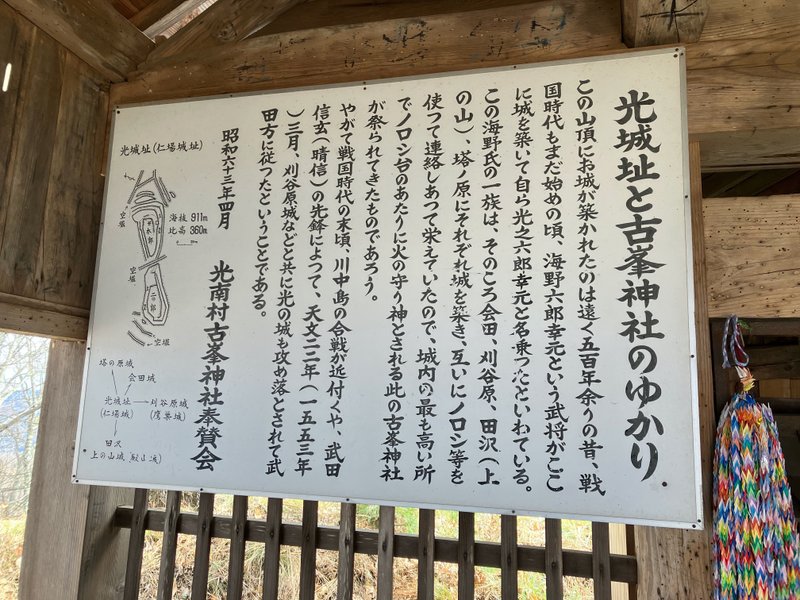 光城址と古峯神社のゆかり
この山頂にお城が築かれたのは遠く五百年余りの昔、戦
国時代もまだ始めの頃、海野六郎幸元という武将がここ
に城を築いて自ら光之六郎幸元と名乗つたといわれている。
この海野氏の一族は、そのころ会田、刈谷原、田沢(上
の山)、塔ノ原にそれぞれ城を築き、互いにノロシ等を
使つて連絡しあつて栄えていたので、城内の最も高い所
でノロシ台のあたりに火の守り神とされる此の古峯神社
が祭られてきたものであろう。
やがて戦国時代の末頃、川中島の合戦が近付くや、武田
信玄(晴信)の先鋒によつて、天文二二年(一五五三年
)三月、刈谷原城などと共に光の城も攻め落とされて武
田方に従つたということである。
昭和六十三年四月
光南村古峯神社奉賛会
光城址(仁場城址)
空堀
海抜 911m
比高 360m
本郭
空堀
二の郭
空堀
塔の原城
会田城
光城址
(仁場城)
刈谷原城
(鷹巣城)
田沢
上の山城